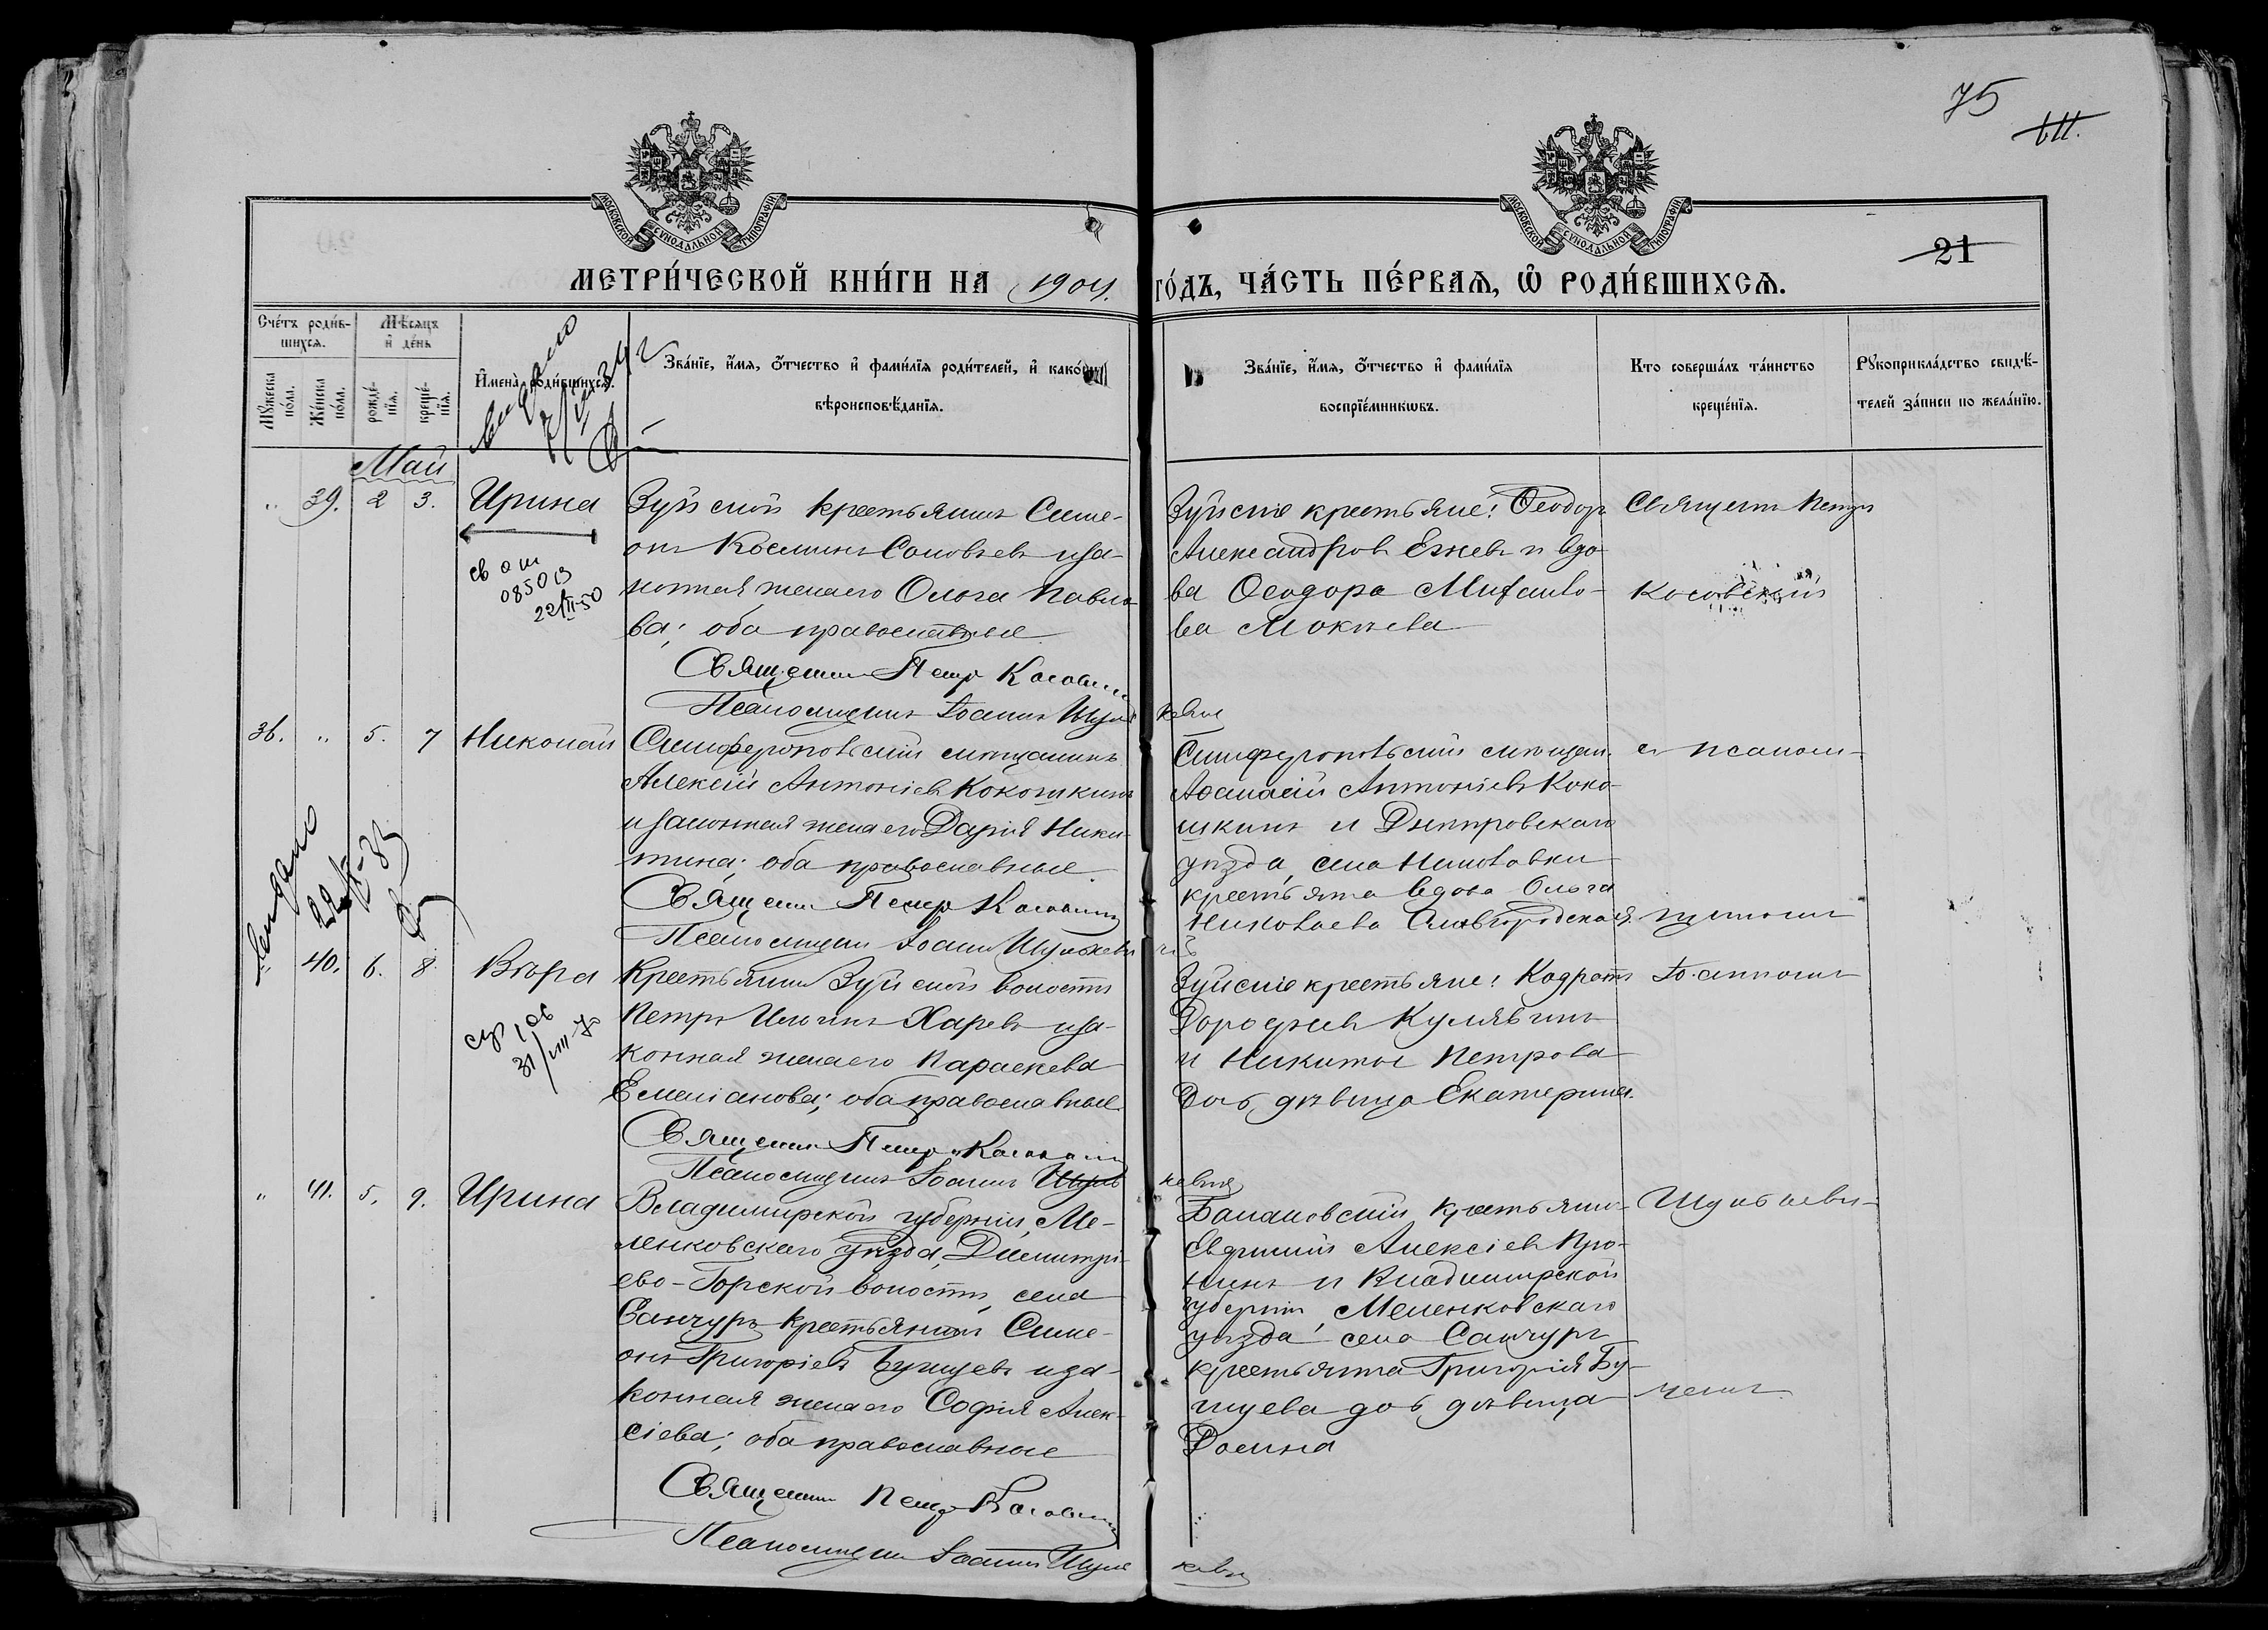 75
МОСКОВСКОЙ СѴНОДАЛЬНОЙ ТИПОГРАФІИ
МОСКОВСКОЙ СѴНОДАЛЬНОЙ ТИПОГРАФІИ
21
МЕТРИ́ЧЕСКОЙ КНИ́ГИ НА 1904. ГО́ДЪ, ЧА́СТЬ ПЕ́РВАѦ, Ѡ РОДИ́ВШИХСѦ.
Сче́тъ роди́в-
шихсѧ.
Мꙋжеска
по́ла.
Же́нска
по́ла.
Мѣ́сѧцъ
и҆ де́нь
рожде́-
нїѧ.
креще́-
нїѧ.
И҆мена̀ роди́вшихсѧ.
Зва́нїе, и҆́мѧ, ѻ҆́тчество и҆ фами́лїѧ роди́телей, и҆ како́гѡ
вѣроисповѣ́данїѧ.
Зва́нїе, и҆́мѧ, ѻ҆́тчество и҆ фами́лїѧ
воспрїе́мникѡвъ.
Кто соверша́лъ та́инство
креще́нїѧ.
Рꙋкоприкла́дство свидѣ́-
телей за́писи по жела́нїю.
Май
„ 39. 2 3. Ирина
Зуйской крестьянинъ Симе-
онъ Косминъ Соловьевъ и за-
конная жена его Ольга Павло-
ва; оба православные
Священник Петръ Косовский
Псаломщикъ Іоаннъ Шуль
кевич
св о ш
08503
22/II-50
Зуйские крестьяне: Ѳеодоръ
Александровъ Ежевъ и вдо-
ва Ѳеодора Михаило-
ва Мокиева
Священ. Петръ
Косовский
36. „ 5. 7 Николай
Симферопольский мещанинъ
Алексій Антоніевъ Кокошкинъ
и законная жена его Дарія Ники-
тина; оба православные
Священник Петръ Косовский
Псаломщик Іоанн Шулькевич
Симферопольский мещан.
Аѳанасій Антоніевъ Коко-
шкинъ и Днѣпровскаго
уѣзда, села
крестьянка вдова Ольга
Николаева Славгородская.
съ псалом-
щикомъ
„ 40. 6. 8. Вѣра
Крестьянинъ Зуйской волости
Петръ Ильинъ Харевъ и за-
конная жена его Параскева
Емеліанова; оба православные
Священник Петръ Косовский
Псаломщикъ Іоаннъ Шуль
кевич
31/VIII-
Зуйские крестьяне: Кодратъ
Дороѳеевъ Кулябинъ
и Никиты Петрова
дочь, дѣвица Екатерина.
Іоанномъ
„ 41. 5. 9. Ирина
Владимирской губерніи, Ме-
ленковскаго уѣзда, Димитрі-
ево-Горской волости, села
Санчуръ крестьянинъ Симе-
онъ Григоріевъ Бунцевъ и за-
конная жена его Софія Алек-
сіева; оба православные
Священник Петръ Косовский
Псаломщик Іоаннъ Шуль
кевич
крестьянин
Евфимій Алексіевъ Про-
нинъ и Владимирской
губерніи, Меленковскаго
уѣзда села Санчуръ
крестьянина Григорія Бу-
нцева дочь дѣвица
Домна
Шулькеви-
чемъ